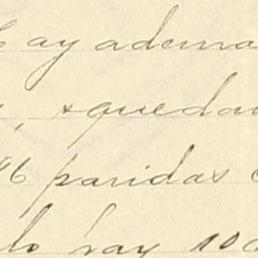 ay adema
, y quedan
6 paridas
lo hay 100